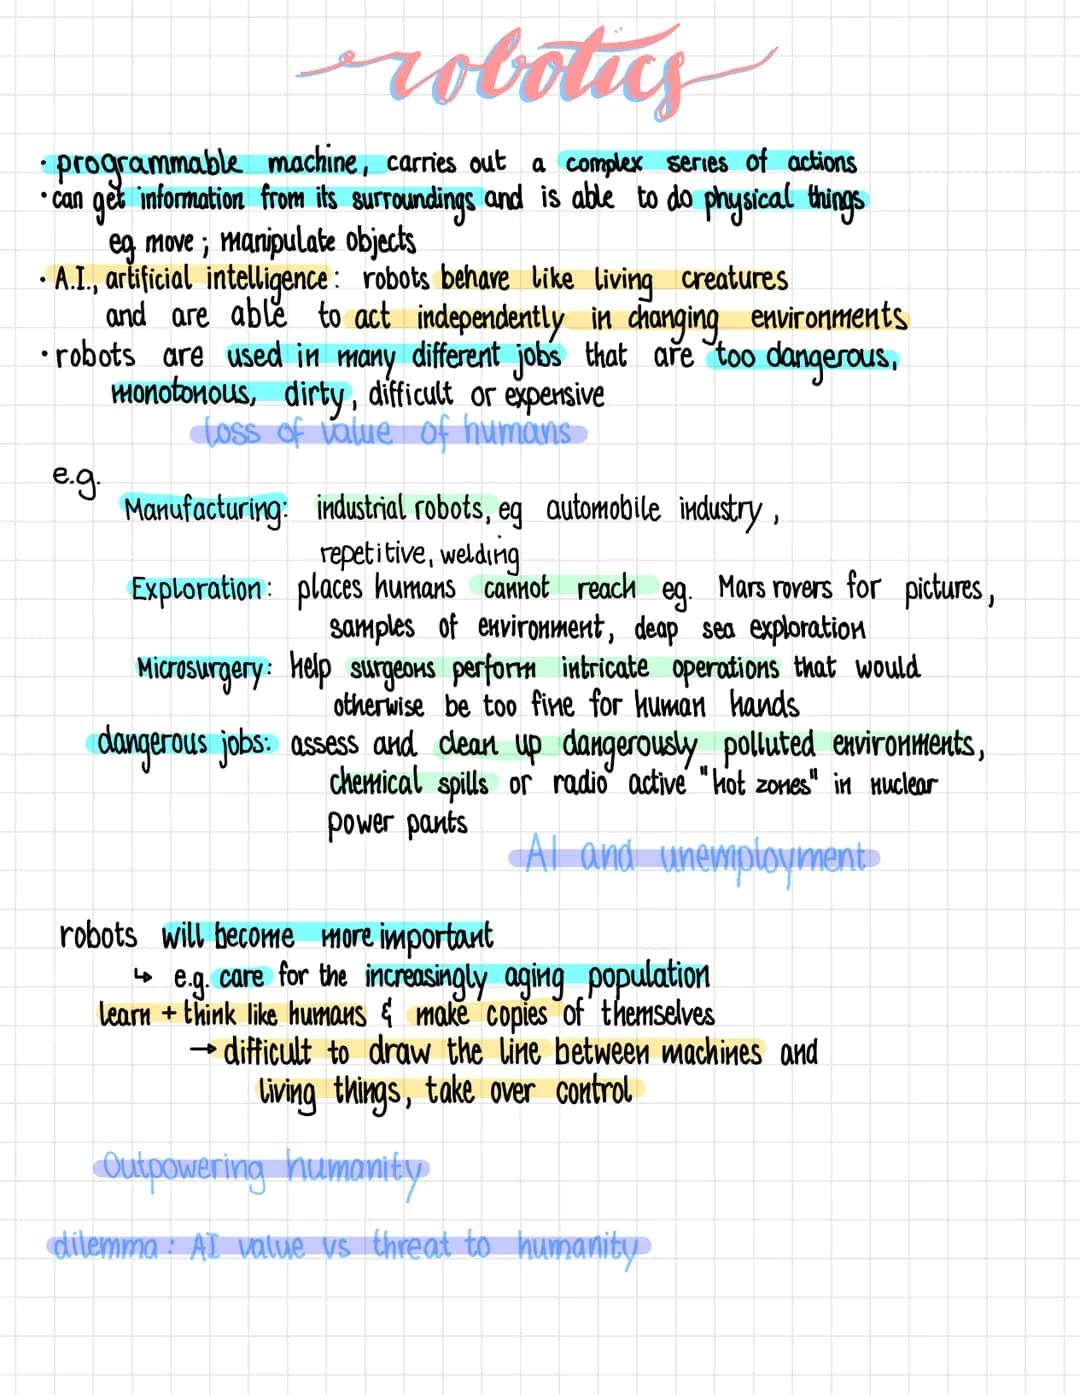 robotics
· programmable machine, carries out a complex series of actions
· can get information from its surroundings and is able to do physical things
eg move ; manipulate objects
· A.I., artificial intelligence : robots behave like living creatures
and are able to act independently in changing environments
· robots are used in many different jobs that are too dangerous,
monotonous, dirty, difficult or expensive
loss of value of humans
e.g.
Manufacturing: industrial robots, eg automobile industry,
repetitive, welding
Exploration: places humans cannot reach eg. Mars rovers for pictures,
samples of environment, deap sea exploration
Microsurgery: help surgeons perform intricate operations that would
otherwise be too fine for human hands
dangerous jobs: assess and clean up dangerously polluted environments,
chemical spills or radio active "hot zones" in nuclear
power pants
AI and unemployment
robots will become more important
↳ e.g. care for the increasingly aging population
learn + think like humans & make copies of themselves
→ difficult to draw the line between machines and
living things, take over control
Outpowering humanity
dilemma : AI value vs threat to humanity